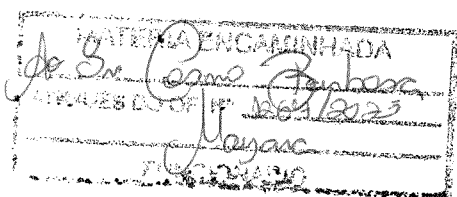 MATÉRIA ENCAMINHADA
Ao Sr. Cosmo Barbosa
ATRAVÉS DO OF Nº 1264/2023
Mayara
FUNCIONÁRIO